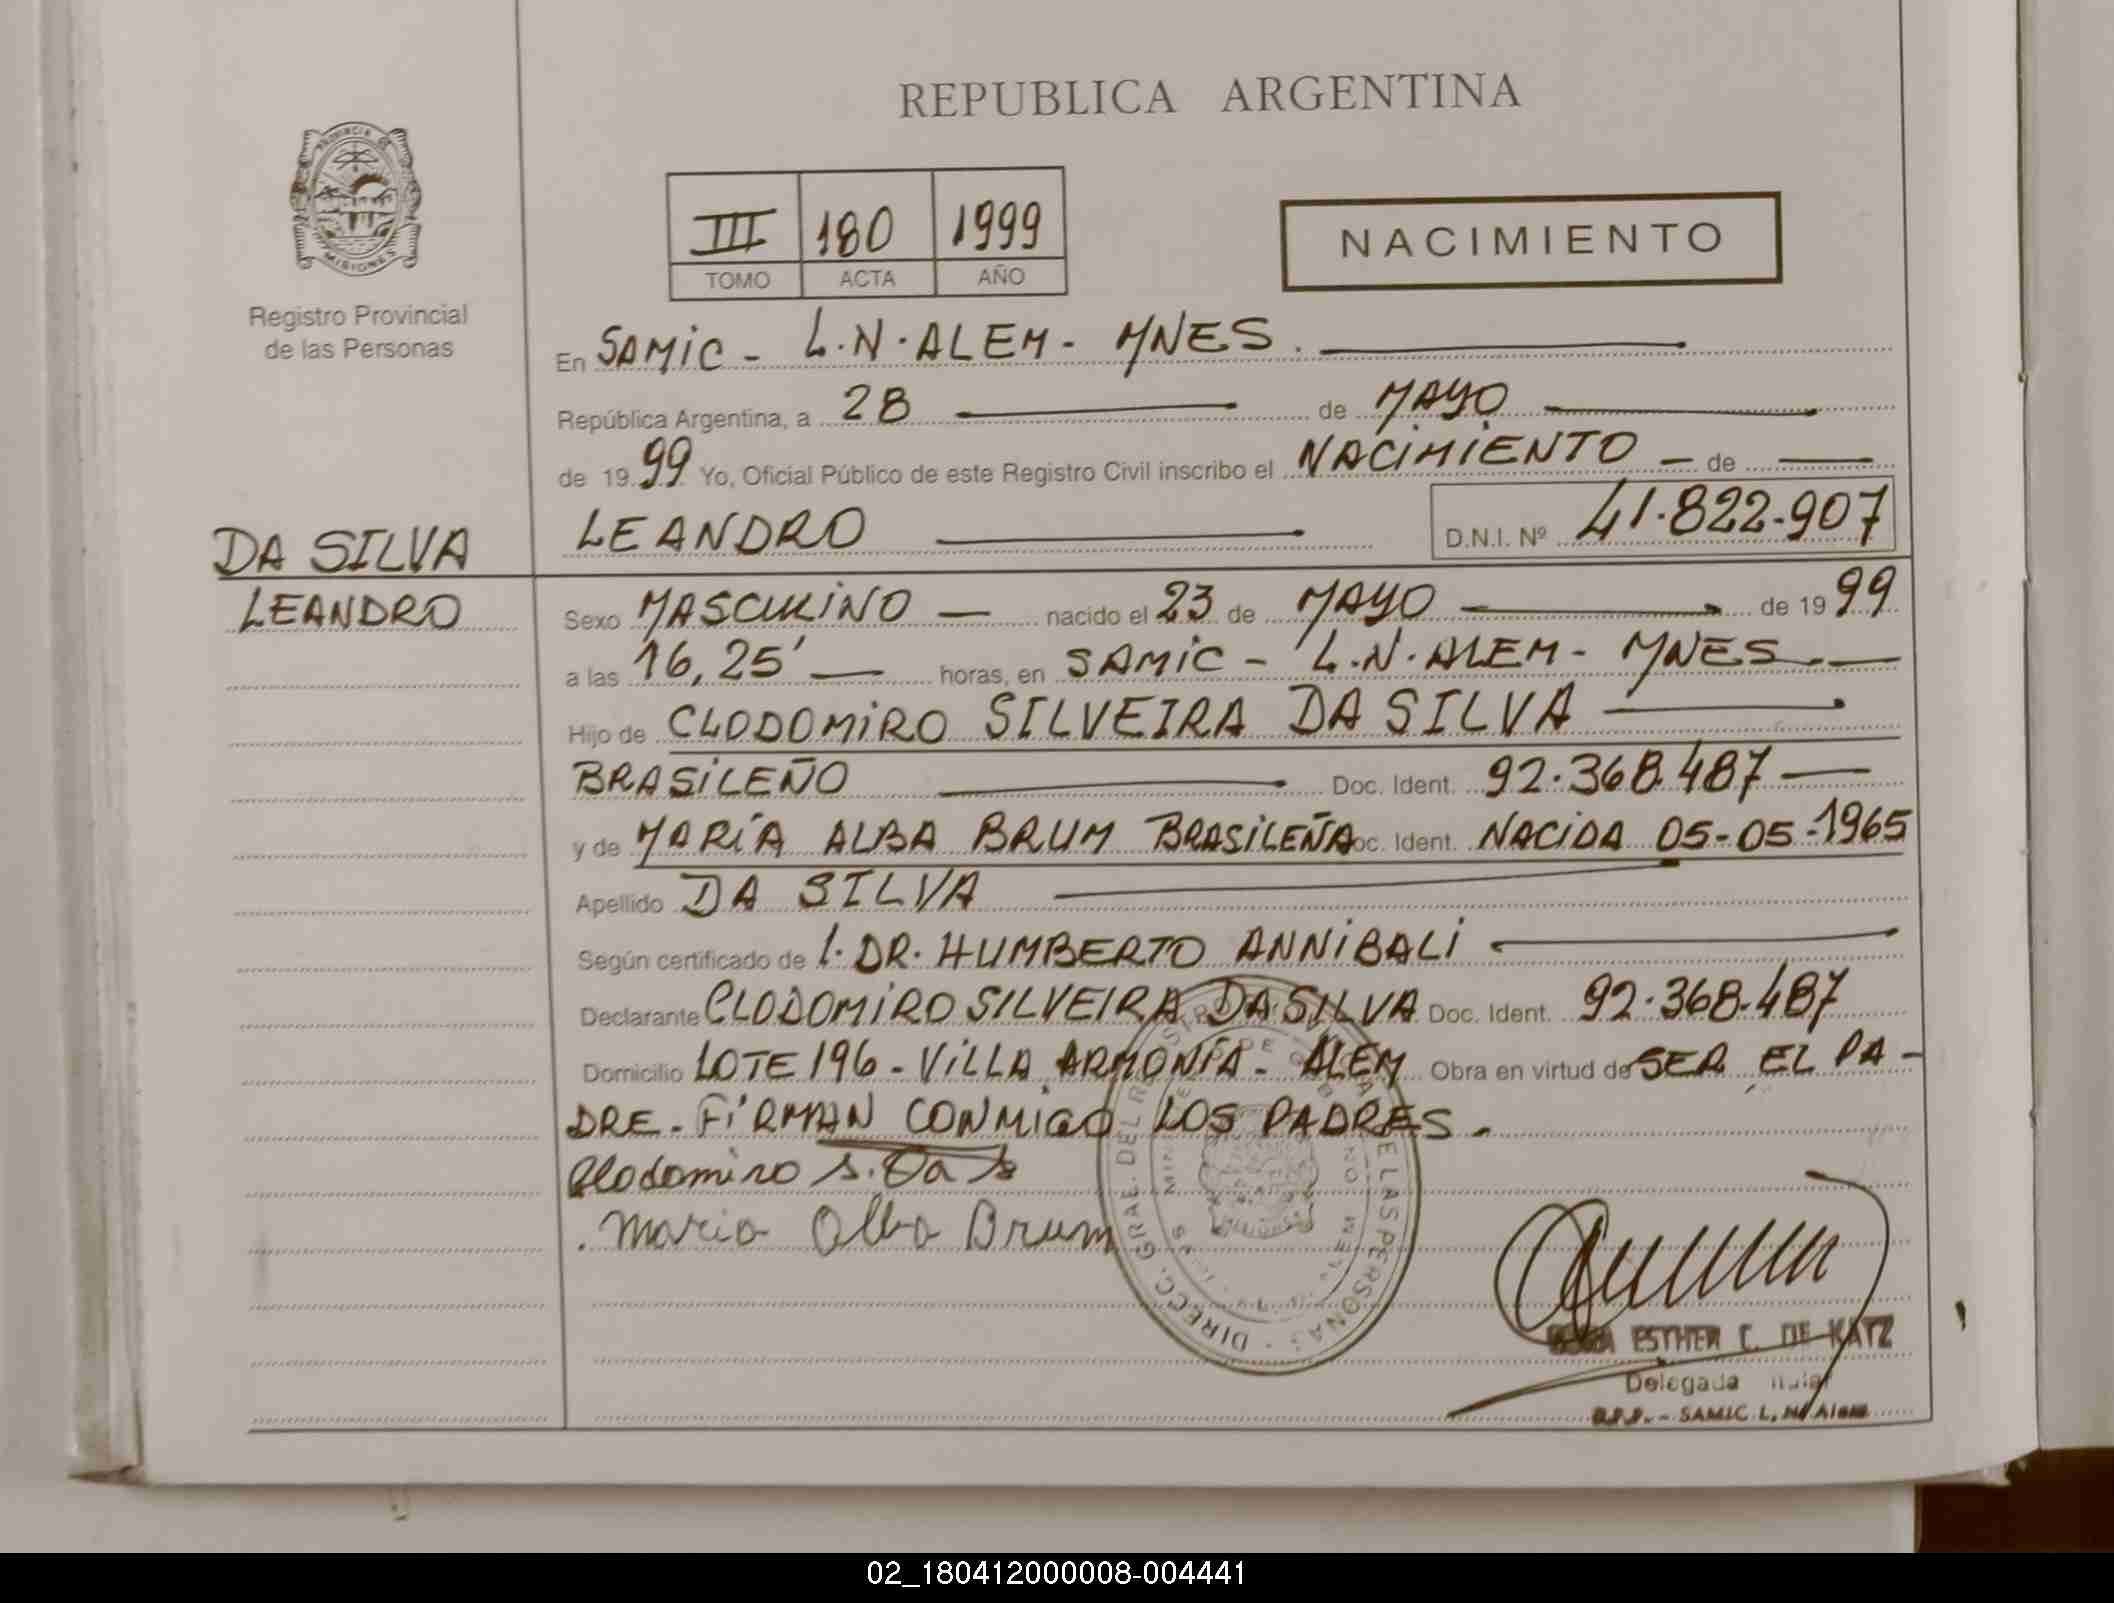 REPUBLICA ARGENTINA
PROVINCIA DE
MISIONES
Registro Provincial
de las Personas
III 180 1999
TOMO ACTA AÑO
NACIMIENTO
En SAMIC - L.N.ALEM - MNES.
República Argentina, a 28 de MAYO
de 1999 Yo, Oficial Público de este Registro Civil inscribo el NACIMIENTO - de
DA SILVA
LEANDRO
LEANDRO D.N.I. Nº 41.822.907
Sexo MASCULINO nacido el 23 de MAYO de 1999
a las 16,25' horas, en SAMIC - L.N.ALEM - MNES.
Hijo de CLODOMIRO SILVEIRA DA SILVA
BRASILEÑO Doc. Ident. 92.368.487
y de MARÍA ALBA BRUM BRASILEÑA oc. Ident. NACIDA 05-05-1965
Apellido DA SILVA
Según certificado de l. DR. HUMBERTO ANNIBALI
Declarante CLODOMIRO SILVEIRA DA SILVA Doc. Ident. 92.368.487
Domicilio LOTE 196 - VILLA ARMONÍA - ALEM Obra en virtud de SER EL PA-
DRE. FIRMAN CONMIGO LOS PADRES.
Clodomiro S. Da S
Maria Alba Brum
DIRECC. GRAL. DEL REGISTRO DE LAS PERSONAS
ESTHER C. DE KATZ
Delegada
SAMIC L. N. Alem
02_180412000008-004441